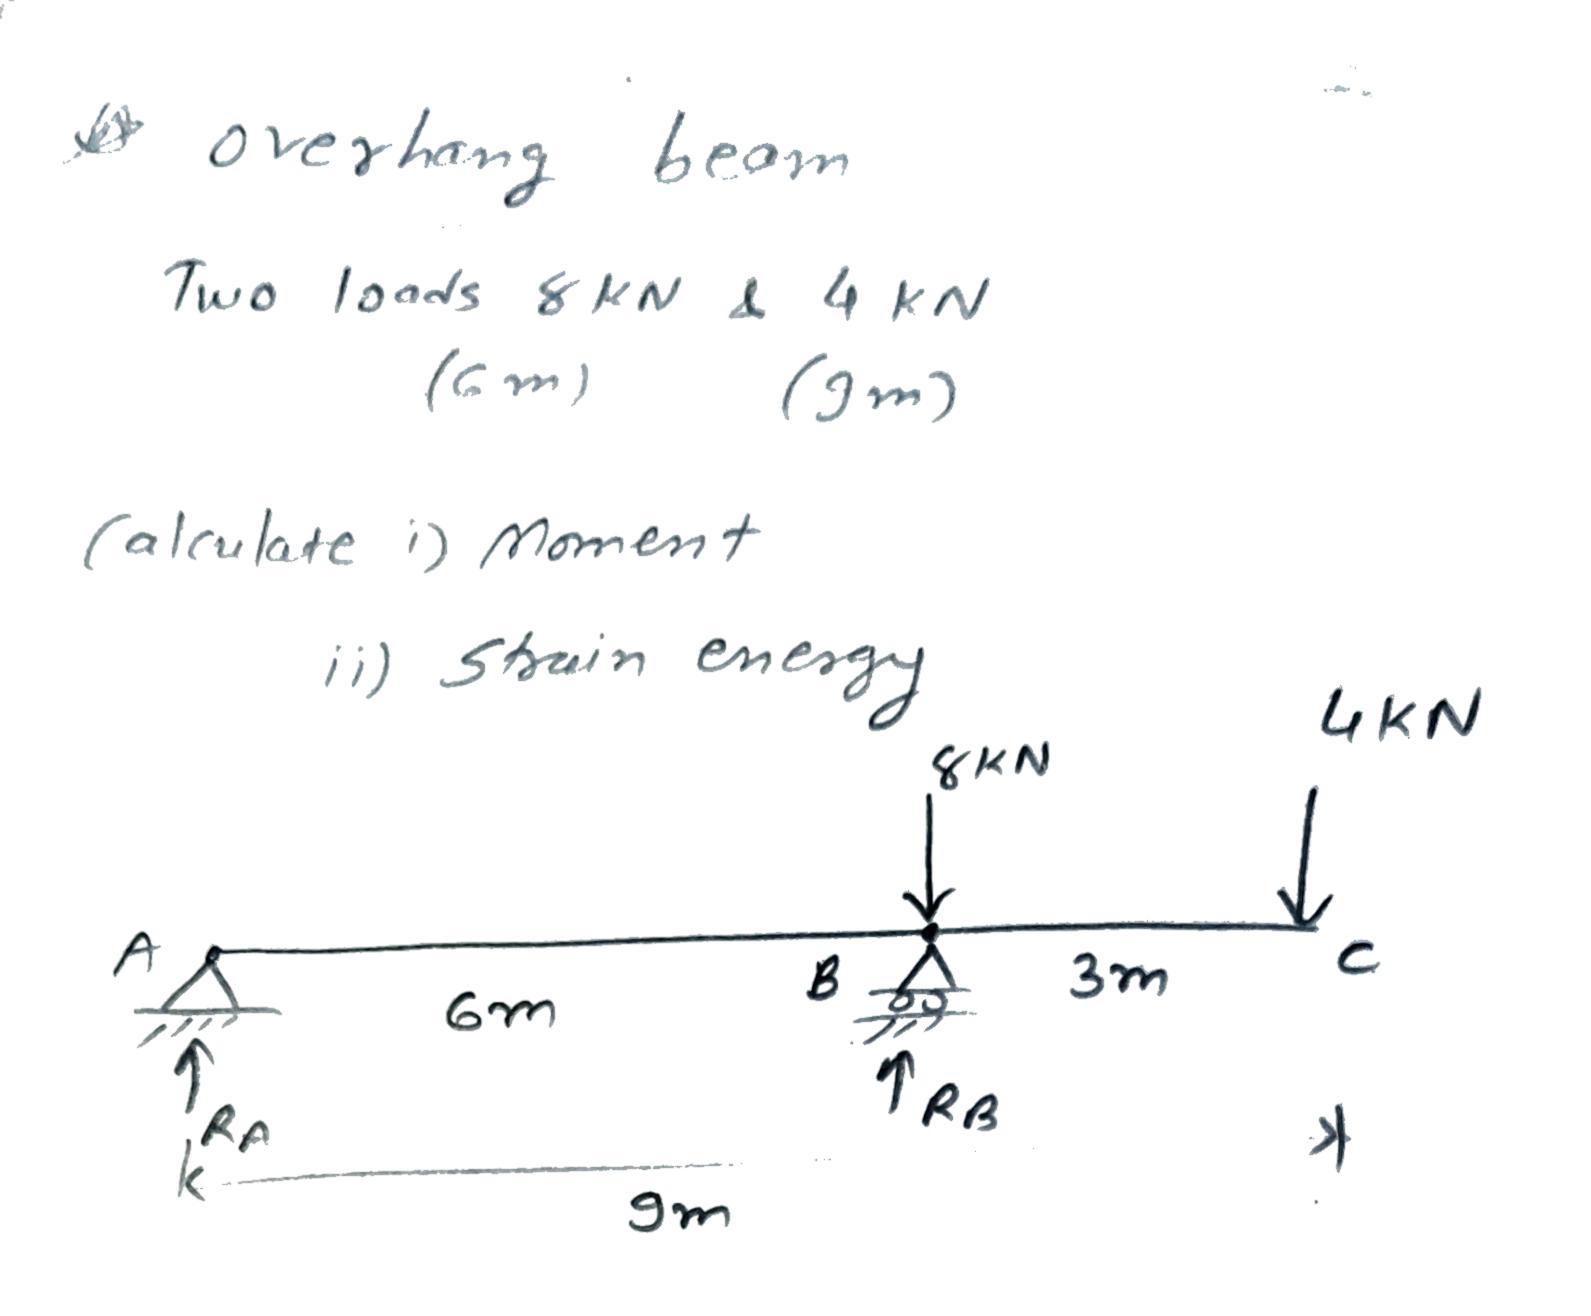 overhang beam
Two loads 8 KN & 4 KN
(6m) (9m)
Calculate i) Moment
ii) Strain energy
4KN
8KN
A
B
3m
C
6m
RA
RB
9m